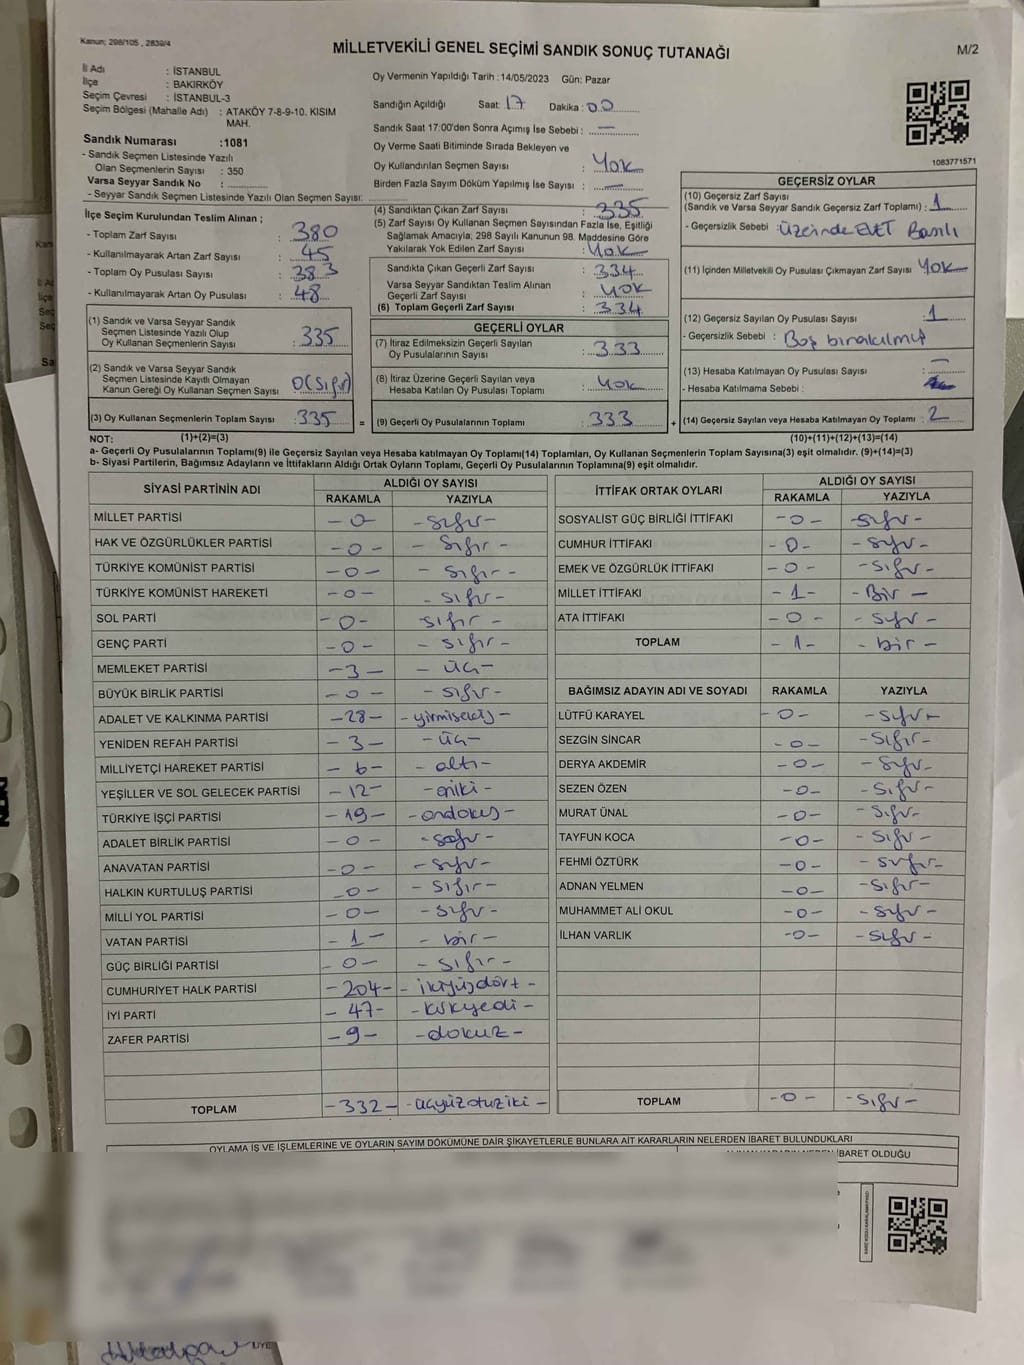 Kanun; 298/105 , 2839/4
MİLLETVEKİLİ GENEL SEÇİMİ SANDIK SONUÇ TUTANAĞI
M/2
İl Adı : İSTANBUL
İlçe : BAKIRKÖY
Seçim Çevresi : İSTANBUL-3
Seçim Bölgesi (Mahalle Adı) : ATAKÖY 7-8-9-10. KISIM
MAH.
Sandık Numarası :1081
- Sandık Seçmen Listesinde Yazılı
Olan Seçmenlerin Sayısı : 350
Varsa Seyyar Sandık No :
- Seyyar Sandık Seçmen Listesinde Yazılı Olan Seçmen Sayısı:
İlçe Seçim Kurulundan Teslim Alınan ;
- Toplam Zarf Sayısı : 380
- Kullanılmayarak Artan Zarf Sayısı : 45
- Toplam Oy Pusulası Sayısı : 383
- Kullanılmayarak Artan Oy Pusulası : 48
(1) Sandık ve Varsa Seyyar Sandık
Seçmen Listesinde Yazılı Olup
Oy Kullanan Seçmenlerin Sayısı : 335
(2) Sandık ve Varsa Seyyar Sandık
Seçmen Listesinde Kayıtlı Olmayan
Kanun Gereği Oy Kullanan Seçmen Sayısı : 0(Sıfır)
(3) Oy Kullanan Seçmenlerin Toplam Sayısı : 335 =
Oy Vermenin Yapıldığı Tarih :14/05/2023 Gün: Pazar
Sandığın Açıldığı Saat: 17 Dakika : 00
Sandık Saat 17:00'den Sonra Açımış İse Sebebi : —
Oy Verme Saati Bitiminde Sırada Bekleyen ve
Oy Kullandırılan Seçmen Sayısı : Yok
Birden Fazla Sayım Döküm Yapılmış İse Sayısı : —
(4) Sandıktan Çıkan Zarf Sayısı : 335
(5) Zarf Sayısı Oy Kullanan Seçmen Sayısından Fazla İse, Eşitliği
Sağlamak Amacıyla; 298 Sayılı Kanunun 98. Maddesine Göre
Yakılarak Yok Edilen Zarf Sayısı : Yok
Sandıkta Çıkan Geçerli Zarf Sayısı : 334
Varsa Seyyar Sandıktan Teslim Alınan
Geçerli Zarf Sayısı : Yok
(6) Toplam Geçerli Zarf Sayısı : 334
GEÇERLİ OYLAR
(7) İtiraz Edilmeksizin Geçerli Sayılan
Oy Pusulalarının Sayısı : 333
(8) İtiraz Üzerine Geçerli Sayılan veya
Hesaba Katılan Oy Pusulası Toplamı : Yok
(9) Geçerli Oy Pusulalarının Toplamı : 333 +
1083771571
GEÇERSİZ OYLAR
(10) Geçersiz Zarf Sayısı
(Sandık ve Varsa Seyyar Sandık Geçersiz Zarf Toplamı) : 1
- Geçersizlik Sebebi : Üzerinde EVET Basılı
(11) İçinden Milletvekili Oy Pusulası Çıkmayan Zarf Sayısı Yok
(12) Geçersiz Sayılan Oy Pusulası Sayısı : 1
- Geçersizlik Sebebi : Boş bırakılmış
(13) Hesaba Katılmayan Oy Pusulası Sayısı : —
- Hesaba Katılmama Sebebi :
(14) Geçersiz Sayılan veya Hesaba Katılmayan Oy Toplamı : 2
NOT: (1)+(2)=(3)
(10)+(11)+(12)+(13)=(14)
a- Geçerli Oy Pusulalarının Toplamı(9) ile Geçersiz Sayılan veya Hesaba katılmayan Oy Toplamı(14) Toplamları, Oy Kullanan Seçmenlerin Toplam Sayısına(3) eşit olmalıdır. (9)+(14)=(3)
b- Siyasi Partilerin, Bağımsız Adayların ve İttifakların Aldığı Ortak Oyların Toplamı, Geçerli Oy Pusulalarının Toplamına(9) eşit olmalıdır.
SİYASİ PARTİNİN ADI
ALDIĞI OY SAYISI
RAKAMLA YAZIYLA
MİLLET PARTİSİ -0- -sıfır-
HAK VE ÖZGÜRLÜKLER PARTİSİ -0- - Sıfır -
TÜRKİYE KOMÜNİST PARTİSİ -0- - sıfır -
TÜRKİYE KOMÜNİST HAREKETİ -0- - sıfır -
SOL PARTİ -0- sıfır -
GENÇ PARTİ -0- - sıfır -
MEMLEKET PARTİSİ -3- - üç-
BÜYÜK BİRLİK PARTİSİ -0- - sıfır-
ADALET VE KALKINMA PARTİSİ -28- -yirmisekiz-
YENİDEN REFAH PARTİSİ -3- -üç-
MİLLİYETÇİ HAREKET PARTİSİ -6- - altı-
YEŞİLLER VE SOL GELECEK PARTİSİ -12- -oniki -
TÜRKİYE İŞÇİ PARTİSİ -19- -ondokuz-
ADALET BİRLİK PARTİSİ -0- -sıfır-
ANAVATAN PARTİSİ -0- -sıfır-
HALKIN KURTULUŞ PARTİSİ -0- - sıfır-
MİLLİ YOL PARTİSİ -0- -sıfır-
VATAN PARTİSİ -1- - bir -
GÜÇ BİRLİĞİ PARTİSİ -0- - sıfır-
CUMHURİYET HALK PARTİSİ -204- - ikiyüzdört -
İYİ PARTİ -47- -kırkyedi -
ZAFER PARTİSİ -9- -dokuz -
TOPLAM -332- -üçyüzotuziki -
İTTİFAK ORTAK OYLARI
ALDIĞI OY SAYISI
RAKAMLA YAZIYLA
SOSYALİST GÜÇ BİRLİĞİ İTTİFAKI -0- -sıfır-
CUMHUR İTTİFAKI -0- -sıfır-
EMEK VE ÖZGÜRLÜK İTTİFAKI -0- -sıfır-
MİLLET İTTİFAKI -1- -Bir -
ATA İTTİFAKI -0- - sıfır -
TOPLAM -1- - bir -
BAĞIMSIZ ADAYIN ADI VE SOYADI RAKAMLA YAZIYLA
LÜTFÜ KARAYEL -0- -sıfır-
SEZGİN SİNCAR -0- -Sıfır-
DERYA AKDEMİR -0- -sıfır-
SEZEN ÖZEN -0- -Sıfır-
MURAT ÜNAL -0- -Sıfır-
TAYFUN KOCA -0- -Sıfır -
FEHMİ ÖZTÜRK -0- - sıfır-
ADNAN YELMEN -0- -Sıfır-
MUHAMMET ALİ OKUL -0- -sıfır -
İLHAN VARLIK -0- -sıfır -
TOPLAM -0- -Sıfır-
OYLAMA İŞ VE İŞLEMLERİNE VE OYLARIN SAYIM DÖKÜMÜNE DAİR ŞİKAYETLERLE BUNLARA AİT KARARLARIN NELERDEN İBARET BULUNDUKLARI
İBARET OLDUĞU
ÜYE